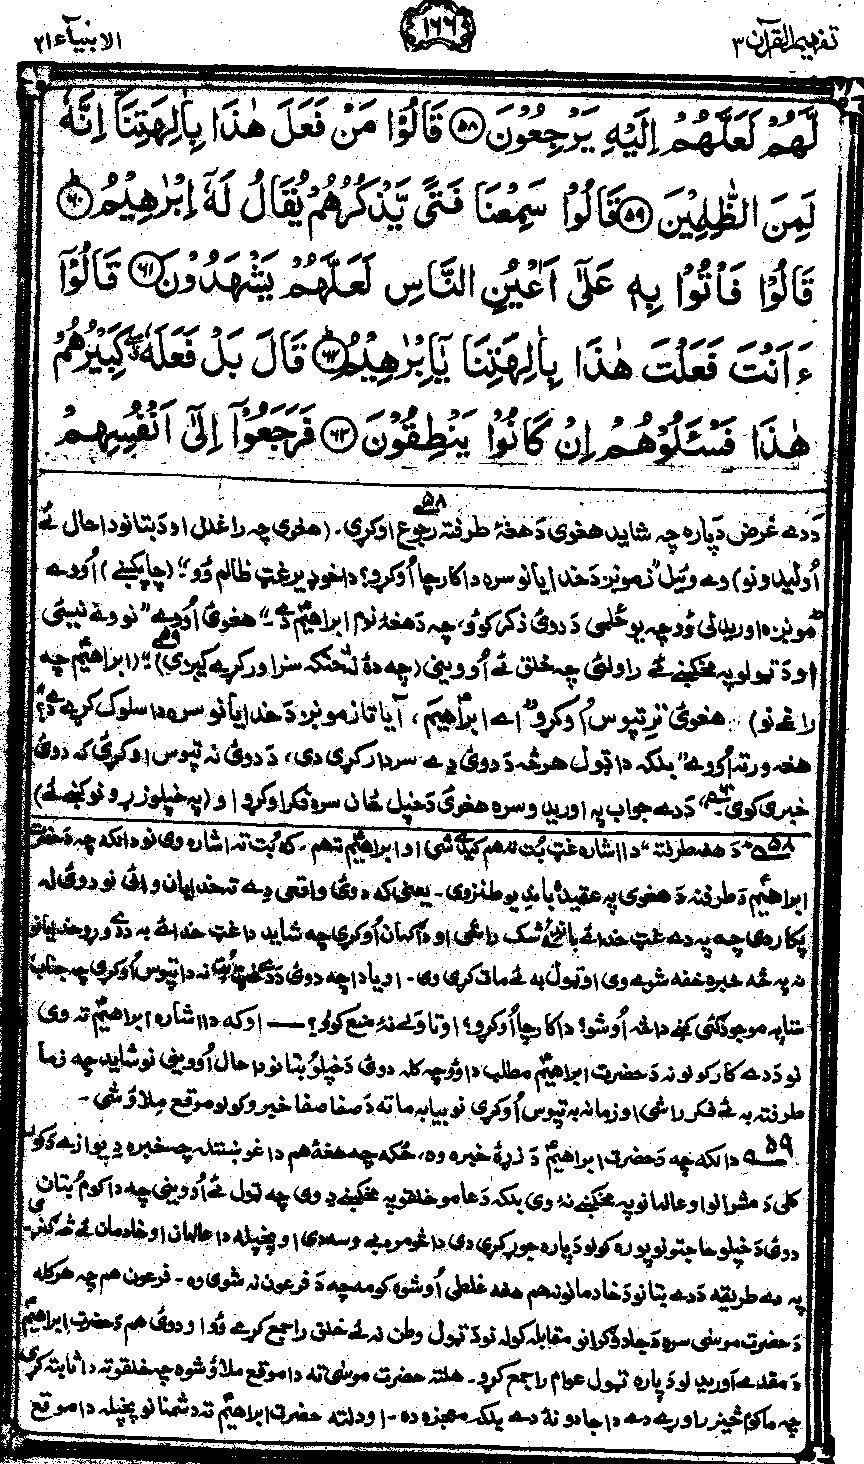 تفهیم القرآن ۳
۱۶۶
الانبیآء ۲۱
لَّهُمْ لَعَلَّهُمْ اِلَيْهِ يَرْجِعُوْنَ ۵۸ قَالُوْا مَنْ فَعَلَ هٰذَا بِاٰلِهَتِنَآ اِنَّهٗ
لَمِنَ الظّٰلِمِيْنَ ۵۹ قَالُوْا سَمِعْنَا فَتًى يَّذْكُرُهُمْ يُقَالُ لَهٗٓ اِبْرٰهِيْمُ ۶۰
قَالُوْا فَاْتُوْا بِهٖ عَلٰٓى اَعْيُنِ النَّاسِ لَعَلَّهُمْ يَشْهَدُوْنَ ۶۱ قَالُوْٓا
ءَاَنْتَ فَعَلْتَ هٰذَا بِاٰلِهَتِنَا يٰٓاِبْرٰهِيْمُ ۶۲ قَالَ بَلْ فَعَلَهٗ كَبِيْرُهُمْ
هٰذَا فَسْـَٔلُوْهُمْ اِنْ كَانُوْا يَنْطِقُوْنَ ۶۳ فَرَجَعُوْٓا اِلٰٓى اَنْفُسِهِمْ
دَدے غرض دَپاره چہ شاید هغوی دَ هغۀ طرفتہ رجوع ۵۸ اوکړی۔ (هغوی چہ راغلل او دَ بتانو دا حال ئے
اُولیدو نو) وے وئیل ”زمونږه دَ خدایانو سره دا کار چا اُوکړو؟ دا خو ډیر غټ ظالم وُو“؛ (چا پکښے) اُووے
”مونږه اوریدلی وُو چہ یو ځلمی دَ دوی ذکر کوو، چہ دَ هغۀ نوم ابراهیمؑ دے۔“ هغوی اُووے ”نو وے نیسئی
او دَ ټولو پہ مخکښے ئے راولئی چہ خلق ئے اُووینی (چہ دۀ لہ څنګہ سزا ورکړے کیږی)“؛ (ابراهیمؑ چہ
راغے نو) هغوی ترے تپوس اُوکړو ”اے ابراهیمؑ، آیا تا زمونږه دَ خدایانو سره دا سلوک کړے دے؟“
هغہ ورتہ اُووے ”بلکہ دا ټول هر څہ دَ دوی دے سردار کړی دی، دَ دوی نہ تپوس اوکړئی کہ دوی
خبرے کوی۔“ دَدے جواب پہ اوریدو سره هغوی دَ خپل ځان سره فکر اوکړو او (پہ خپلو زړونو کښے ئے)
۵۸ دَ هغہ طرفتہ ”دا اشاره غټ بُت تہ هم کیدلے شی او ابراهیمؑ تہ هم۔ کہ بُت تہ اشاره وی نو دا لکہ چہ دَ حضرت
ابراهیمؑ دَ طرفنہ دَ هغوی پہ عقیده باندِ یو طنز وی۔ یعنی کہ دوی واقعی دے تہ خدایان وائی نو دوی لہ
پکار دی چہ پہ دے غټ خدائے باندے شک راشی او دا ګمان اُوکړی چہ شاید دا غټ خدائے بہ دَدے وړو خدایانو
نہ پہ څہ خبره خفہ شوے وی او ټول بہ ئے مات کړی وی۔ او یا دا چہ دوی دَ غټ بُت نہ دا تپوس اُوکړی چہ جناب
ستا پہ موجودګئی کښے دا څہ اُوشو؟ دا کار چا اُوکړو؟ او تا ولے نۀ منع کولو؟ ـــــ او کہ دا اشاره ابراهیمؑ تہ وی
نو دَدے کار کولو نہ دَ حضرت ابراهیمؑ مطلب دا وُو چہ کلہ دوی دَ خپلو بتانو دا حال اُووینی نو شاید چہ زما
طرفتہ بہ ئے فکر راشی او زما نہ بہ تپوس اُوکړی نو بیا بہ ما تہ دَ صفا صفا خبرو کولو موقع ملاؤ شی۔
۵۹ دا لکہ چہ دَ حضرت ابراهیمؑ دَ زړۀ خبره وه، ځکہ چہ هغۀ هم دا غوښتل چہ خبره دِ یوازے دَ
کلی دَ مشرانو او عالمانو پہ مخکښے نۀ وی بلکہ دَ عامو خلقو پہ مخکښے دِ وی چہ ټول ئے اُووینی چہ دا کوم بُتان
دوی دَ خپلو حاجتونو پوره کولو دَپاره جوړ کړی دی دا څومره بے وسہ دی او پخپلہ دا عالمان او خادمان ئے څہ ګنړی۔
پہ دے طریقہ دَدے بتانو دَ خادمانو نہ هم هغہ غلطی اُوشوه کومہ چہ دَ فرعون نہ شوی وه۔ فرعون هم چہ هرکلہ
دَ حضرت موسٰی سره دَ جادوګرانو مقابلہ کولہ نو دَ ټول وطن نہ ئے خلق راجمع کړے وُو او دوی هم دَ حضرت ابراهیمؑ
دَ مقدمے اوریدلو دَپاره ټول عوام راجمع کړو۔ هلتہ حضرت موسٰی تہ دا موقع ملاؤ شوه چہ خلقو تہ دا ثابتہ کړی
چہ ما کوم څیز راوړے دے دا جادو نۀ دے بلکہ معجزه ده۔ او دلتہ حضرت ابراهیمؑ تہ دشمنانو پخپلہ دا موقع